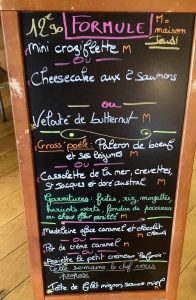 12€90 FORMULE M = maison
Jeudi
Mini croziflette M
Cheesecake aux 2 saumons
ou
Velouté de butternut M
Gross' poêlé : Paleron de boeuf
et ses légumes M
ou
Cassolette de la mer, crevettes,
St Jacques et doré austral M
Garnitures : frites, riz, mogettes,
haricots verts, fondue de poireaux
ou chou fleur persillé M
Madeleine office caramel et chocolat
ou
Pot de crème caramel M
ou
le petit crémeux
Cette semaine le chef vous
propose
Joste de filet mignon sauce miel M